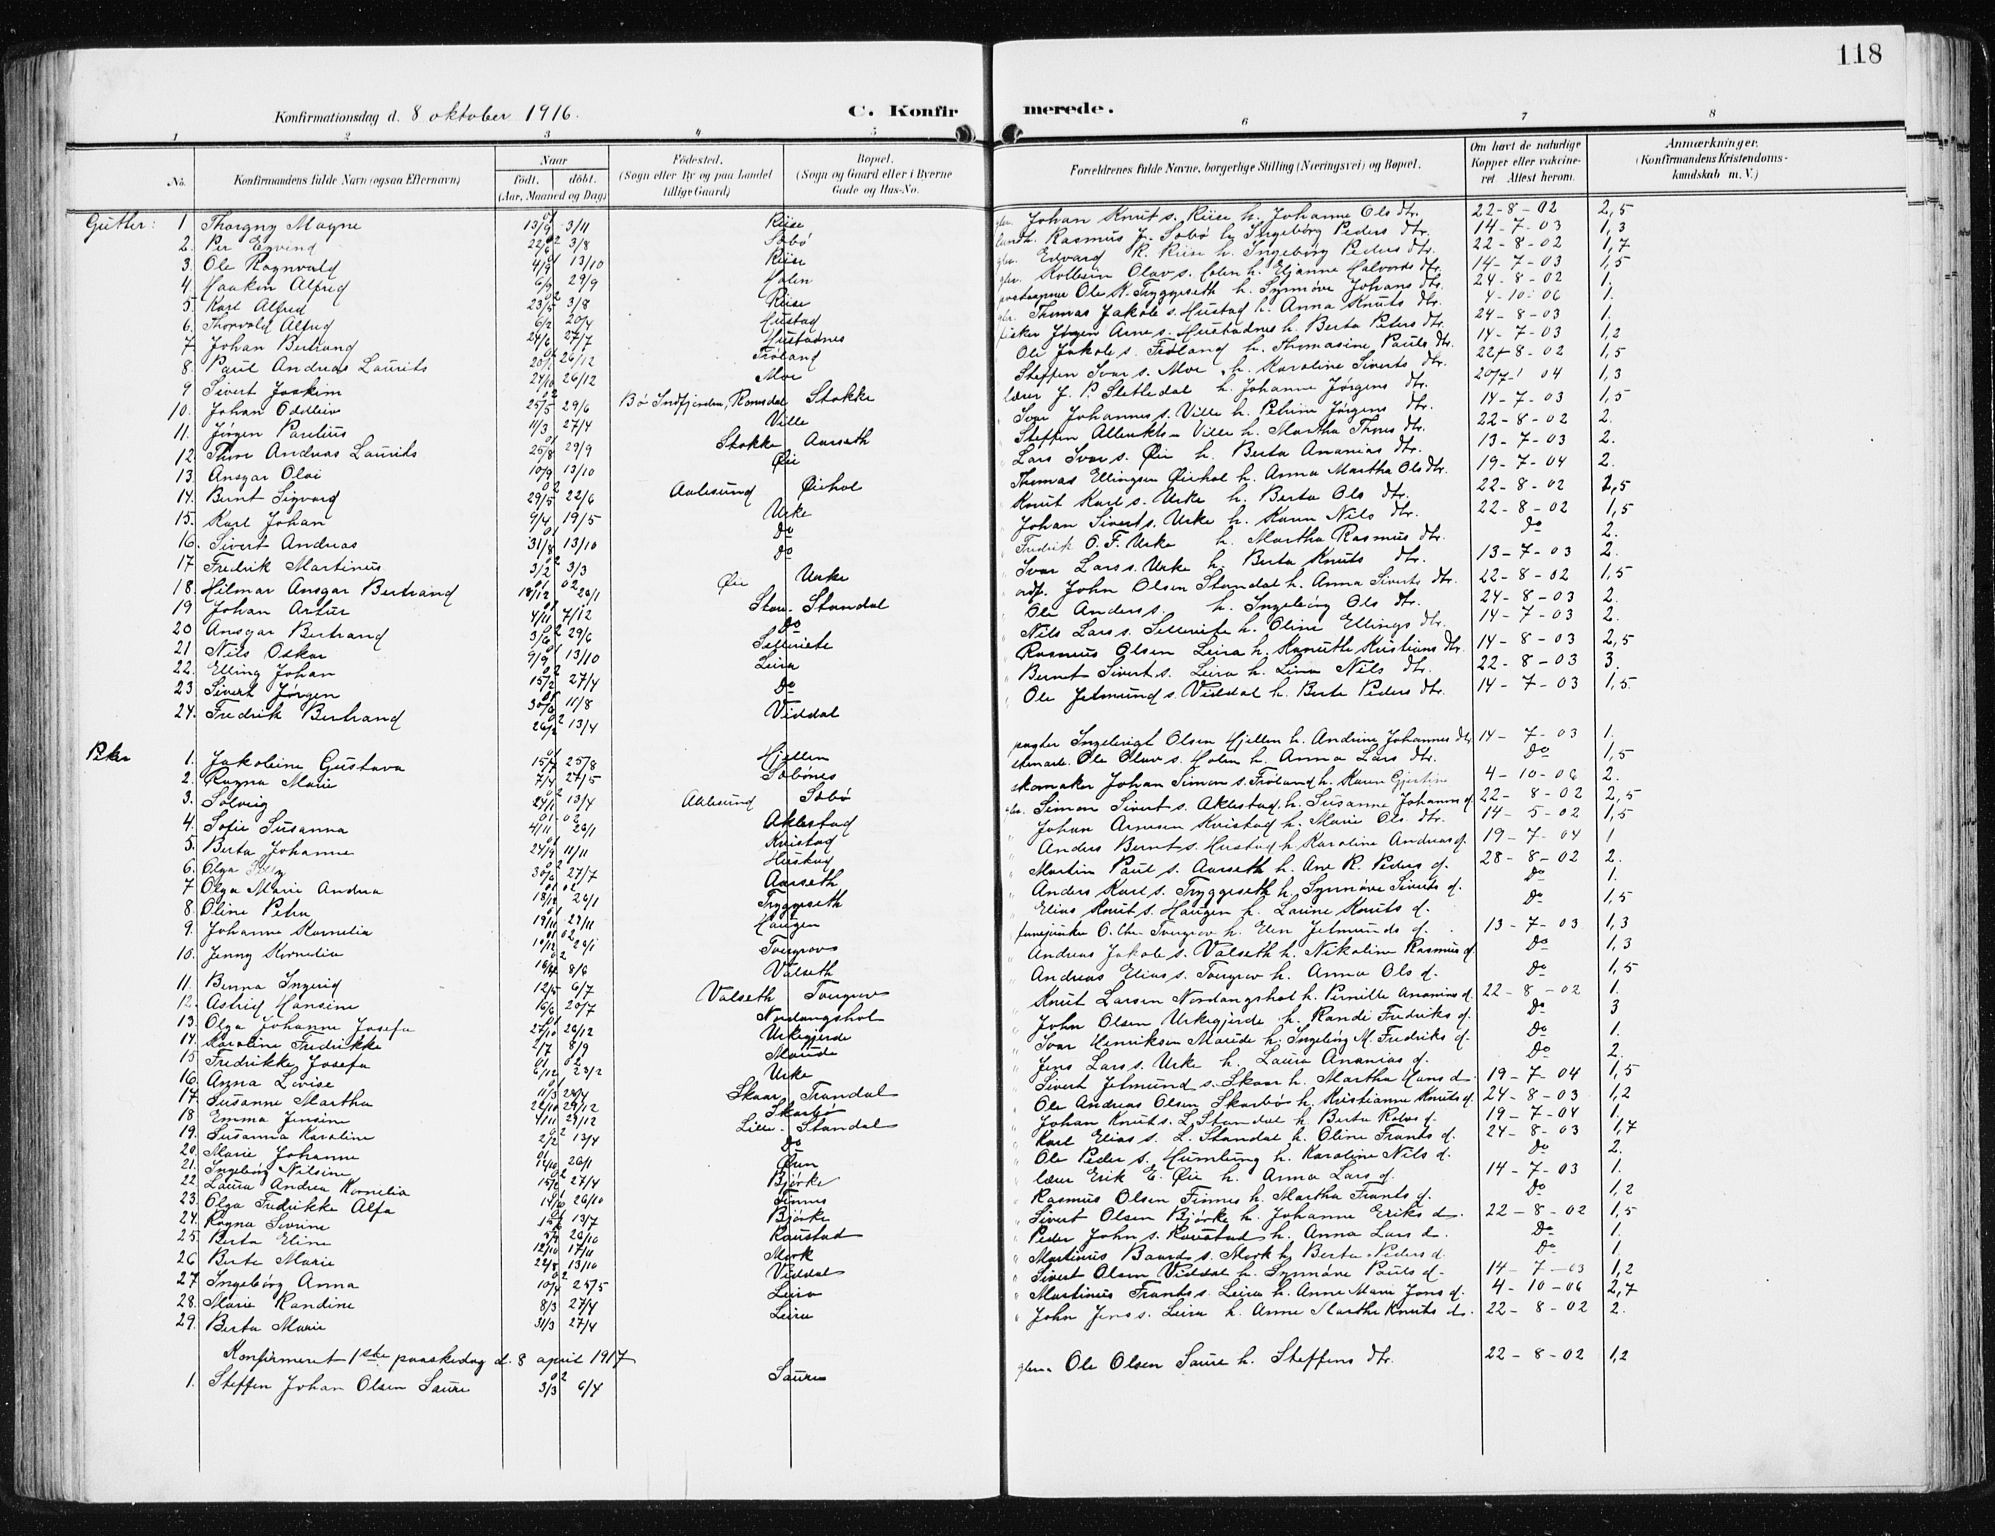 118
Konfirmationsdag d. 8 oktober 1916. C. Konfirmerede.
1 2 3 4 5 6 7 8
No. Konfirmandens fulde Navn (ogsaa Efternavn) Naar født. døbt. (Aar, Maaned og Dag) Fødested. (Sogn eller By og paa Landet tillige Gaard) Bopæl. (Sogn og Gaard eller i Byerne Gade og Hus-No. Forældrenes fulde Navne, borgerlige Stilling (Næringsvei) og Bopæl. Om havt de naturlige Kopper eller vakcineret. Attest herom. Anmærkninger. (Konfirmandens Kristendomskundskab m. V.)
Gutter: 1 Thorgny Magne 13/9 3/11 Riise Johan Knut s. Riise h. Johanne Ols dtr. 22-8-02 2,5
2. Per Eyvind 3/8 Sæbø Rasmus J. Sæbø h. Ingebørg Peders dtr. 14-7-03 1,3
3. Ole Ragnvald 4/9 13/10 Riise Edvard K. Riise h. Ingebørg Peders dtr. 22-8-02 1,7
4. Haakon Alfred 6/9 29/9 Holen Kolbein Olav s. Holen h. Halvords dtr. 14-7-03 1,5
5. Karl Alfred 23/5 3/8 Riise Ole K. Tryggeseth h. Synnøve Johans dtr. 24-8-02 1.
6. Thorvald Alfred 6/2 20/4 Hustad Thomas Jakob s. Hustad h. Anna Knuts dtr. 4-10-06 1.
7. Johan Bertrand 24/6 27/7 Hustadnes fisker Jørgen Arne s. Hustadnes h. Berta Peters dtr. 24-8-03 1.
8. Paul Andreas Laurits 26/12 Frøland Ole Jakob s. Frøland h. Thomasine Pauls dtr. 14-7-03 1,2
9 Sivert Joakim 24/10 26/12 Moe Steffen Ivar s. Moe h. Karoline Siverts dtr. 22-8-02 1,5
10. Johan Oddleiv 25/5 29/6 Bø Indfjorden, Romsdal Stokke lærer J. P. Slettedal h. Johanne Jørgens dtr. 04 1,3
11. Jørgen Parelius 11/3 27/4 Ville Ivar Johannes s. Ville h. Petrine Jørgens dtr. 14-7-03 1,5
12. Thore Andreas Laurits 25/8 29/9 Stokke Aarseth Steffen Ville h. Martha Thores dtr. 22-8-02 2.
13. Ansgar Olai 10/9 13/10 Øie Lars Ivar s. Øie h. Berta Ananias dtr. 13-7-03 2.
14. Bernt Sigvard 29/5 22/6 Aalesund Øiehol Thomas Ellingsen Øiehol h. Anna Martha Ols dtr. 19-7-04 2.
15. Karl Johan 9/4 19/5 Urke Knut Karl s. Urke h. Berta Ols dtr. 22-8-02 2,5
16. Sivert Andreas 31/8 13/10 Do Johan Sivert s. Urke h. Karen Nils dtr. 22-8-02 1,5
17 Fredrik Martinus 3/2 3/3 Do Fredrik O. F. Urke h. Martha Rasmus dtr. Do 2.
18. Hilmar Ansgar Bertrand 18/12 20/1 Øie Urke Ivar Lars s. Urke h. Berta Knuts dtr. 13-7-03 2.
19 Johan Artur 4/11 7/12 Stor-Standal John Olsen Standal h. Anna Siverts dtr. 22-8-02 1,5
20 Ansgar Bertrand 3/6 29/6 Do Ole Anders s. h. Ingebørg Ols dtr. 24-8-03 2.
21 Nils Oskar 9/9 13/10 Nils Lars s. h. Oline Ellings dtr. 14-7-03 2.
22. Elling Johan 15/2 27/4 Leira Rasmus Olsen Leira h. Kristians dtr. 14-8-03 2,5
23. Sivert Jørgen 11/8 Do Bernt Sivert s. Leira h. Lina Nils dtr. 22-8-03 3.
24. Fredrik Bertrand 26/2 13/4 Viddal Ole Jetmund s. Viddal h. Berte Peders dtr. 14-7-03 1,5
Piker 1. Jakobine Gustava 15/7 25/8 Hjellen Ingebrigt Olsen Hjellen h. Andrine Johannes dtr. 14-7-03 1.
2. Ragna Marie 7/4 27/5 Sæbønes Ole Olav s. Holen h. Anna Lars dtr. Do 1,5
3. Solveig 24/1 13/4 Aalesund Sæbø skomaker Johan Simon s. Frøland h. Karen Gjertine 4-10-06 2.
4. Sofie Susanna 4/11 20/1 Aklestad Simon Sivert s. Aklestad h. Susanne Johannes d. 22-8-02 2,5
5. Berta Johanne 24/9 11/11 Kvistad Johan Arnesen Kvistad h. Marie Ols dtr. 14-5-02 1,5
6. Olga 30/6 27/7 Hustad Anders Bernt s. Hustad h. Karoline Andreas d. 19-7-04 1
7 Olga Marie Andrea 18/12 20/1 Aarseth Martin Paul s. Aarseth h. Ane R. Peders d. 28-8-02 2.
8. Oline Petra 19/11 29/11 Tryggeseth Anders Karl s. Tryggeseth h. Synnøve Siverts d. Do 1.
9. Johanne Kornelia 20/1 Haugen Elias Knut s. Haugen h. Laurine Knuts d. Do 1,5
10. Jenny Kornelia 8/6 Tvergrov O. Chr. Tvergrov h. Elen Jetmunds d. 13-7-03 1,3
11. Benna Ingerid 12/5 6/7 Valseth Andreas Jakob s. Valseth h. Nikoline Rasmus d. Do 1,3
12. Astrid Hansine 16/6 20/7 Valseth Tvergrov Andreas Elias s. Tvergrov h. Anna Ols d. Do 1,5
13. Olga Johanne Josefa 27/10 26/12 Nordangshol Knut Larsen Nordangshol h. Pernille Ananias d. 22-8-02 1.
14. Karoline Fredrikke 2/7 8/9 Urkegjerde John Olsen Urkegjerde h. Randi Fredriks d. Do 3
15 Fredrikke Josefa 6/12 23/2 Maude Ivar Henriksen Maude h. Ingebørg M. Fredriks d. Do 1.
16. Anna Lovise Urke Jens Lars s. Urke h. Laura Ananias d. Do 2.
17. Susanne Martha 11/3 Skaar Trandal Sivert Jetmund s. Skaar h. Martha Hans d. 19-7-04 1,5
18 Emma Jensine 29/12 Skarbø Ole Andreas Olsen Skarbø h. Kristianne Knuts d. 24-8-03 1,2
19. Susanna Karoline 4/11 29/12 Lille-Standal Johan Knut s. L. Standal h. Berta d. 19-7-04 1.
20. Marie Johanne 2/2 13/4 Do Karl Elias s. L. Standal h. Oline Frants d. 24-8-03 1,7
21. Ingebørg Nilsine 20/1 Øien Ole Peder s. Humlung h. Karoline Nils d. Do 2.
22. Laura Andrea Kornelia 15/2 27/4 Bjørke lærer Erik E. Øie h. Anna Lars d. 14-7-03 1.
23. Olga Fredrikke Alfa 26/10 Finnes Rasmus Olsen Finnes h. Martha Frants d. Do 1,2
24. Ragna Sevrine 13/7 Bjørke Sivert Olsen Bjørke h. Johanne Eriks d. 22-8-02 1,5
25. Berta Eline 26/10 Raustad Peder John s. Raustad h. Anna Lars d. Do 1.
26 Berte Marie 12/10 17/11 Mork Martinus Baard s. Mork h. Berta Peders d. Do 1.
27 Ingebørg Anna 22/8 13/10 Viddal Sivert Olsen Viddal h. Synnøve Pauls d. 14-7-03 1,2
28. Marie Randine 25/5 Leira Martinus Frants s. Leira h. Anne Marie Jons d. 4-10-06 2,7
29. Berta Marie 31/3 27/4 Leira John Jens s. Leira h. Anne Marthe Knuts d. 22-8-02 2.
Konfirmeret 1ste paaskedag d. 8 april 1917
1. Steffen Johan Olsen Saure 3/3 6/4 Saure Ole Olsen Saure h. Steffens dtr. 22-8-02 1,2